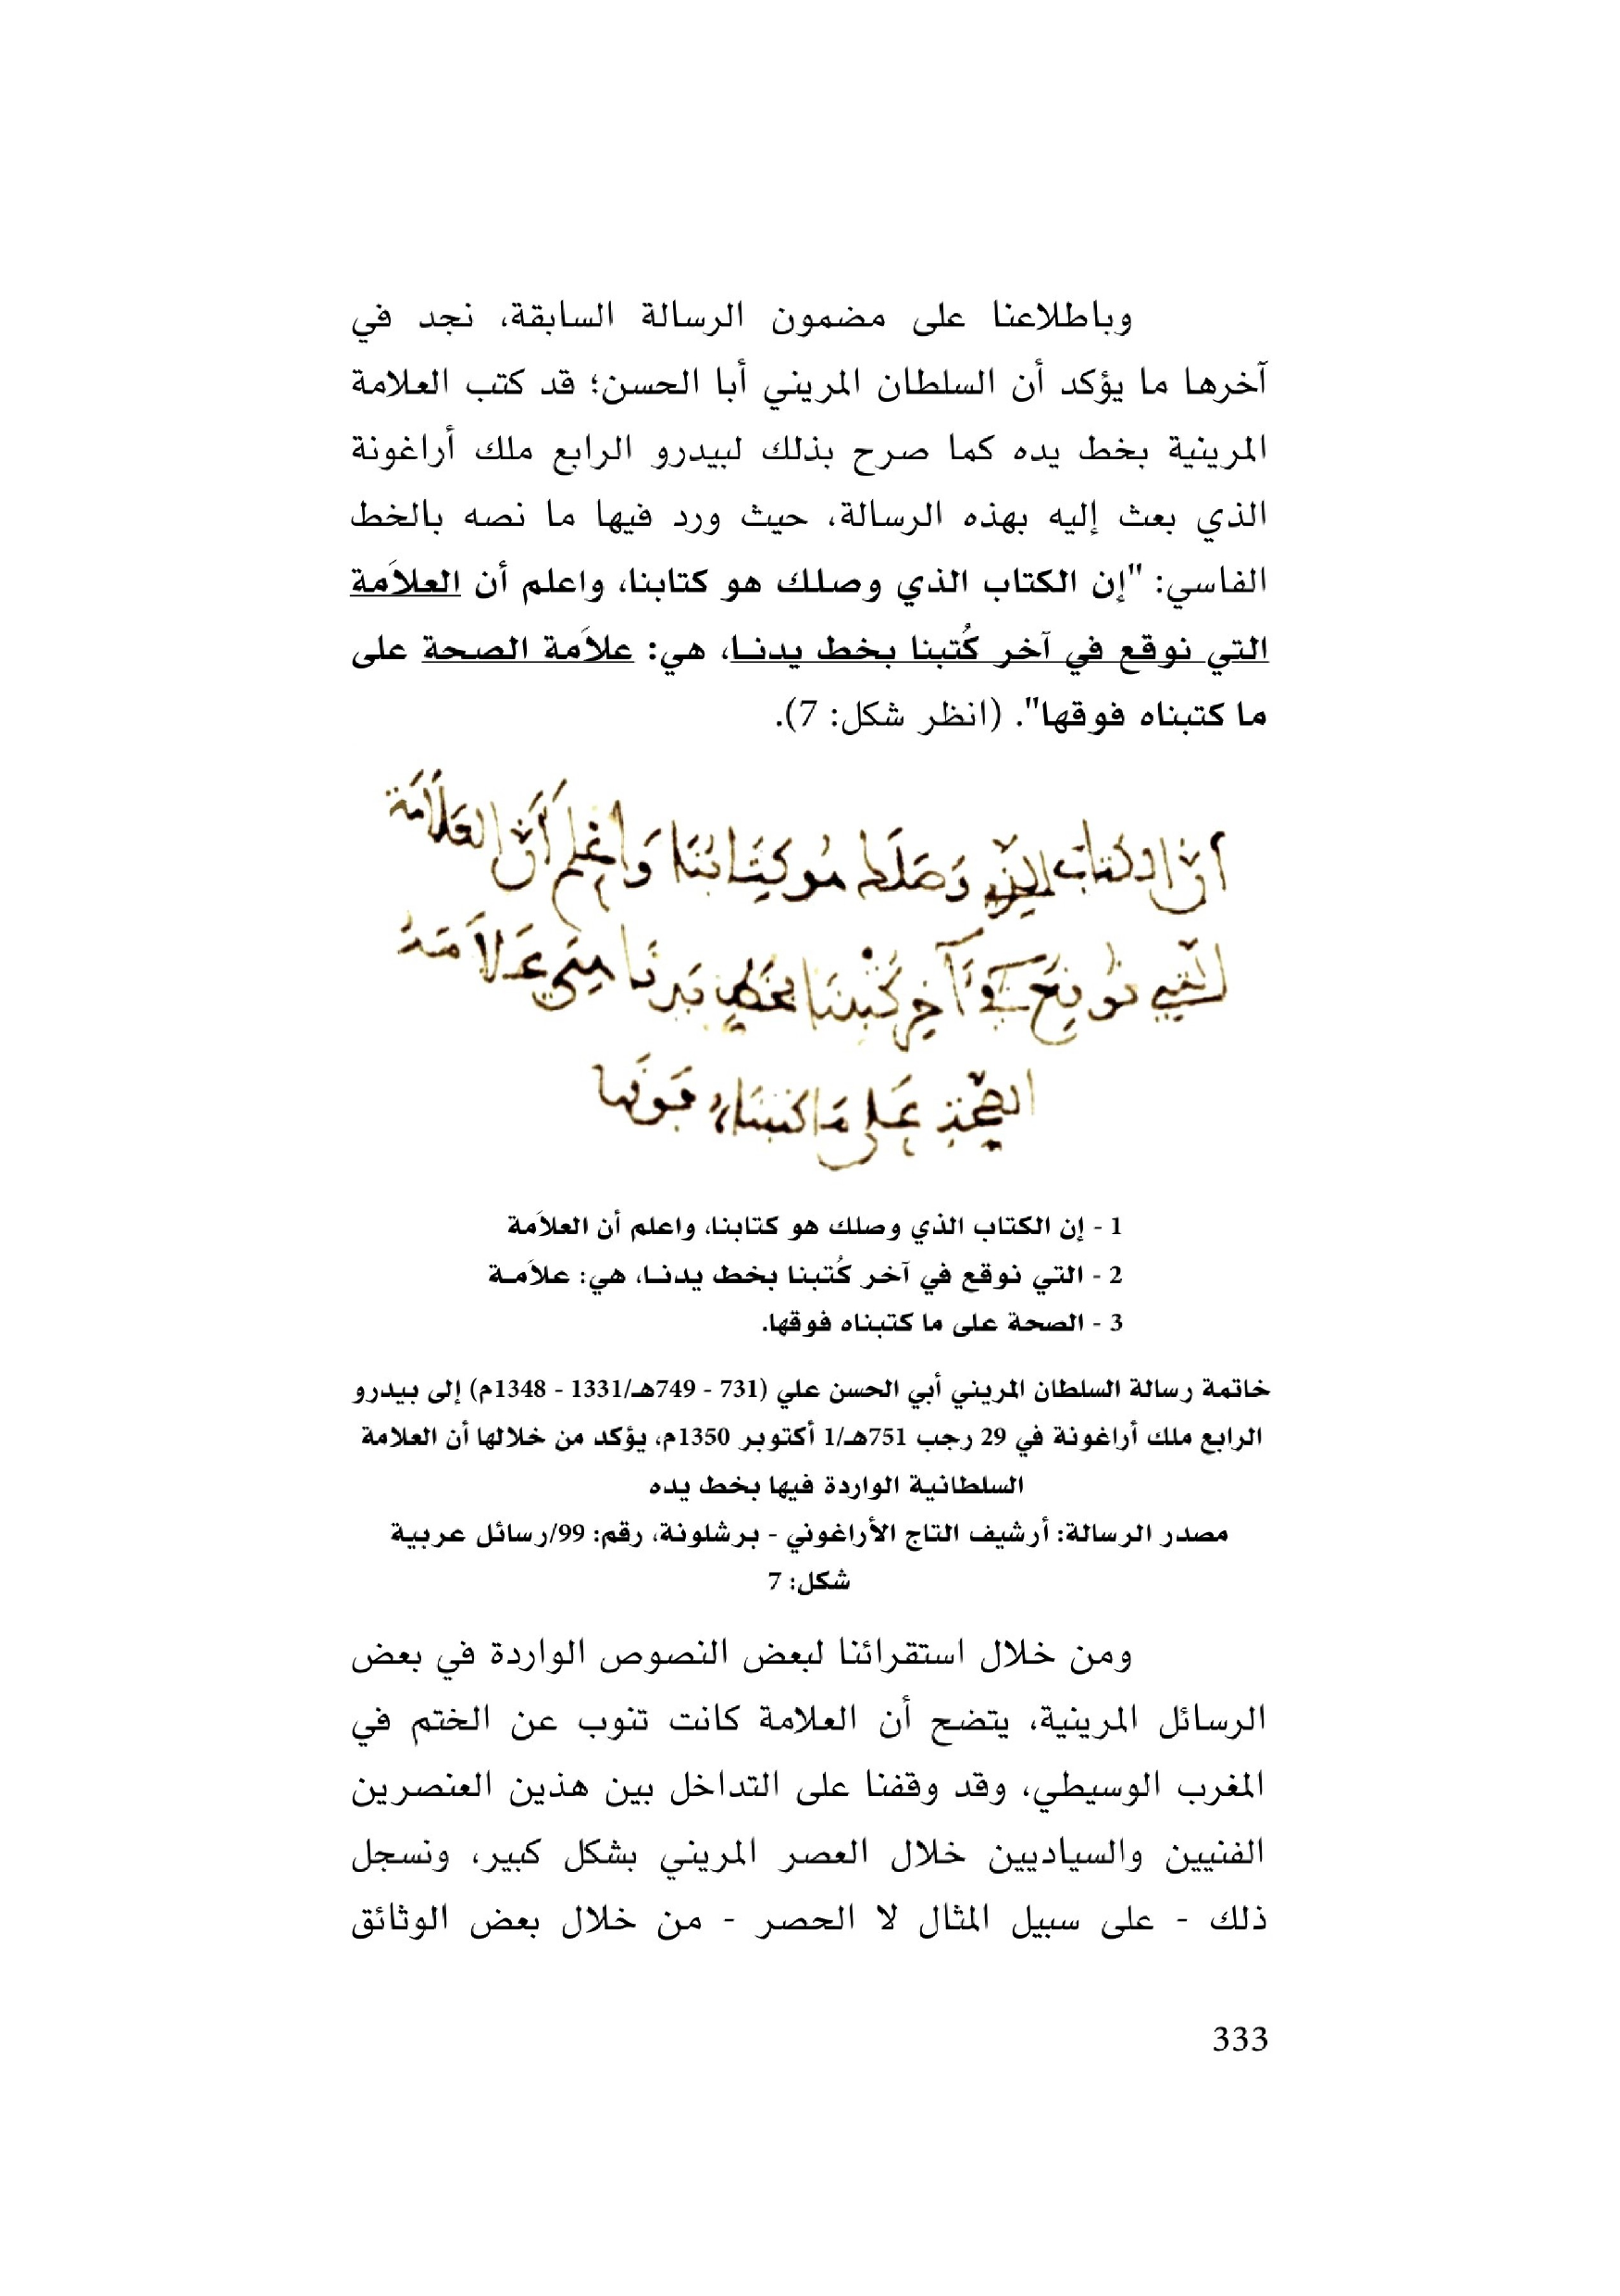 وباطلاعنا على مضمون الرسالة السابقة، نجد في
آخرها ما يؤكد أن السلطان المريني أبا الحسن؛ قد كتب العلامة
المرينية بخط يده كما صرح بذلك لبيدرو الرابع ملك أراغونة
الذي بعث إليه بهذه الرسالة، حيث ورد فيها ما نصه بالخط
الفاسي: "إن الكتاب الذي وصلك هو كتابنا، واعلم أن العلاَمة
التي نوقع في آخر كُتبنا بخط يدنـا، هي: علاَمة الصحة على
ما كتبناه فوقها". (انظر شكل: 7).
أنّ الكتاب الذي وَصَلَك هُو كِتَابُنَا وَاعْلم أَنّ العَلَامَة
التي نُوقِعُ في آخِر كُتْبنَا بخَطِّ يَدِنَا هِيَ عَلَامَةُ
الصِّحّةِ عَلى مَا كتبنَاهُ فَوقَها
1 - إن الكتاب الذي وصلك هو كتابنا، واعلم أن العلاَمة
2 - التي نوقع في آخر كُتبنا بخط يدنـا، هي: علاَمـة
3 - الصحة على ما كتبناه فوقها.
خاتمة رسالة السلطان المريني أبي الحسن علي (731 - 749هـ/1331 - 1348م) إلى بيدرو
الرابع ملك أراغونة في 29 رجب 751هـ/1 أكتوبر 1350م، يؤكد من خلالها أن العلامة
السلطانية الواردة فيها بخط يده
مصدر الرسالة: أرشيف التاج الأراغوني - برشلونة، رقم: 99/رسائل عربية
شكل: 7
ومن خلال استقرائنا لبعض النصوص الواردة في بعض
الرسائل المرينية، يتضح أن العلامة كانت تنوب عن الختم في
المغرب الوسيطي، وقد وقفنا على التداخل بين هذين العنصرين
الفنيين والسياديين خلال العصر المريني بشكل كبير، ونسجل
ذلك - على سبيل المثال لا الحصر - من خلال بعض الوثائق
333